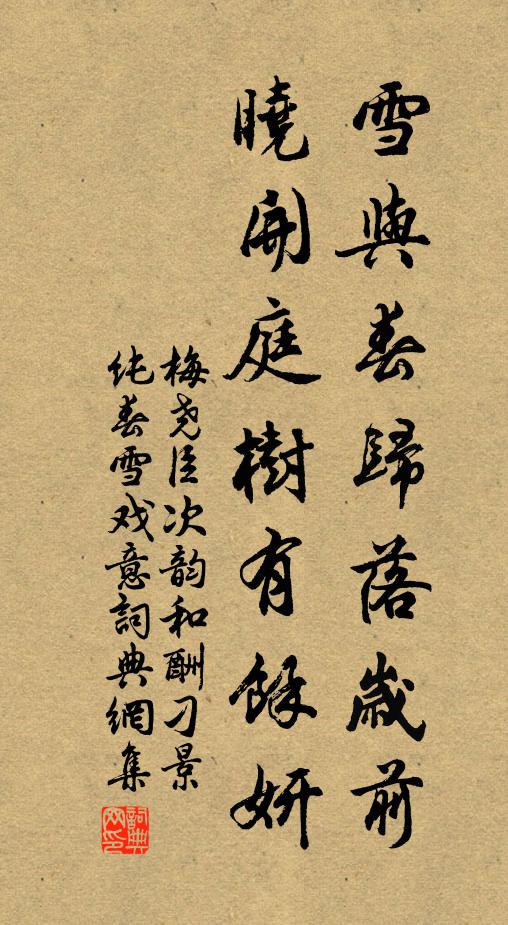 雪與春歸落歲前
曉開庭樹有餘妍
梅尧臣次韵和酬刁景
纯春雪戏意詞典網集
詞典网印